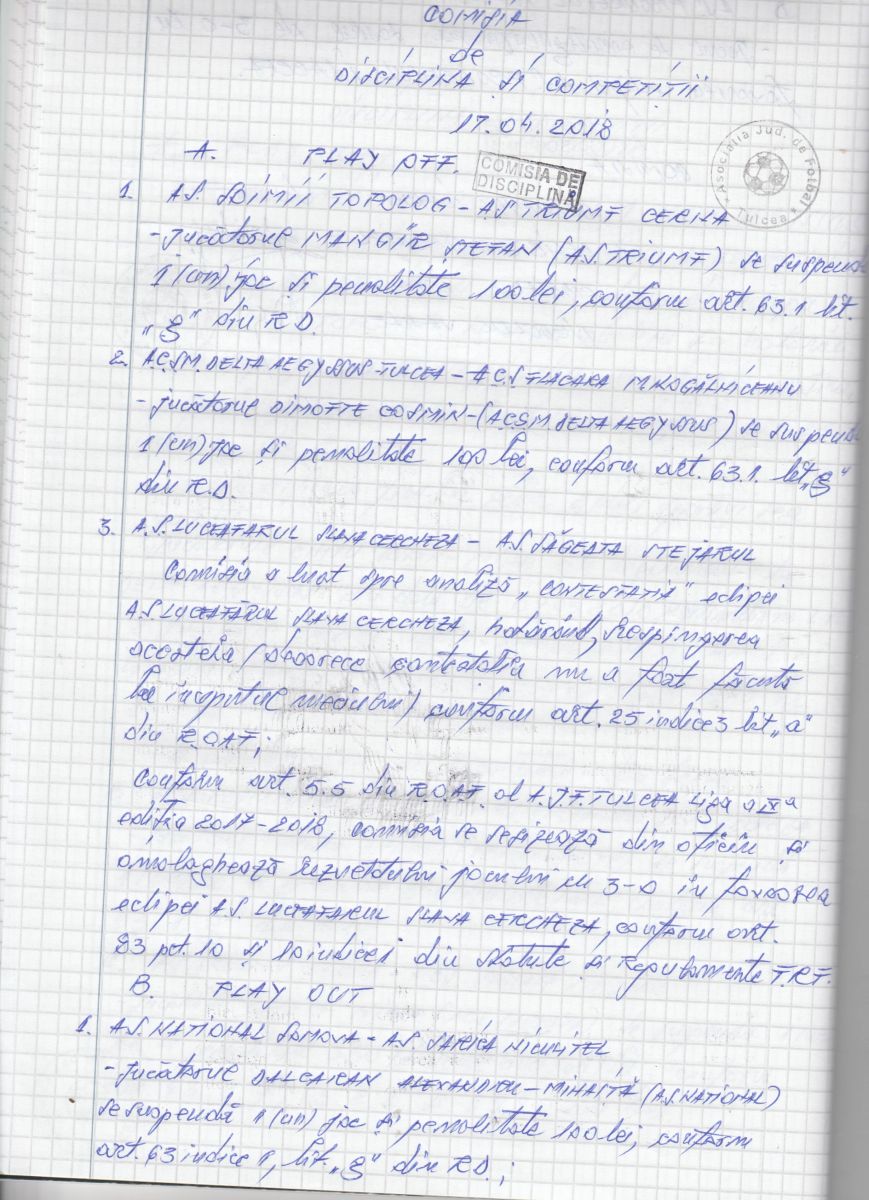 COMISIA
de
DISCIPLINA și COMPETIȚII
17.04.2018
A. PLAY OFF.
COMISIA DE
DISCIPLINĂ
Asociatia Jud. de Fotbal
Tulcea
1. A.S. ȘOIMII TOPOLOG - AS TRIUMF CERNA
- jucătorul MANGÎR ȘTEFAN (A.S. TRIUMF) se suspendă
1 (un) joc și penalitate 100 lei, conform art. 63.1 lit.
„g" din R.D.
2. A.C.S.M. DELTA AEGYSSUS TULCEA - A.C.S FLACARA M. KOGĂLNICEANU
- jucătorul DIMOFTE COSMIN - (A.C.S.M. DELTA AEGYSSUS) se suspendă
1 (un) joc și penalitate 100 lei, conform art. 63.1. lit. „g"
din R.D.
3. A.S. LUCEAFARUL SLAVA CERCHEZA - A.S. SĂGEATA STEJARUL
Comisia a luat spre analiză „CONTESTATIA" echipei
A.S. LUCEAFĂRUL SLAVA CERCHEZA, hotărând, respingerea
acesteia (deoarece contestatia nu a fost făcută
la începutul meciului) conform art. 25 indice 3 lit „a"
din R.O.A.F;
Conform art. 5.5 din R.O.A.F. al A.J.F. TULCEA Liga a IV a
editia 2017-2018, comisia se sesizează din oficiu și
omologhează rezultatului jocului cu 3-0 în favoarea
echipei A.S. LUCEAFARUL SLAVA CERCHEZA, conform art.
83 pct. 10 și 10 indice 1 din Statute și Regulamente F.R.F.
B. PLAY OUT
1. A.S. NATIONAL SOMOVA - A.S. SARICA NICULITEL
- jucătorul DALCARAN ALEXANDRU - MIHAIȚĂ (A.S. NATIONAL)
se suspendă 1 (un) joc și penalitate 100 lei, conform
art. 63 indice 1, lit. „g" din R.D.;